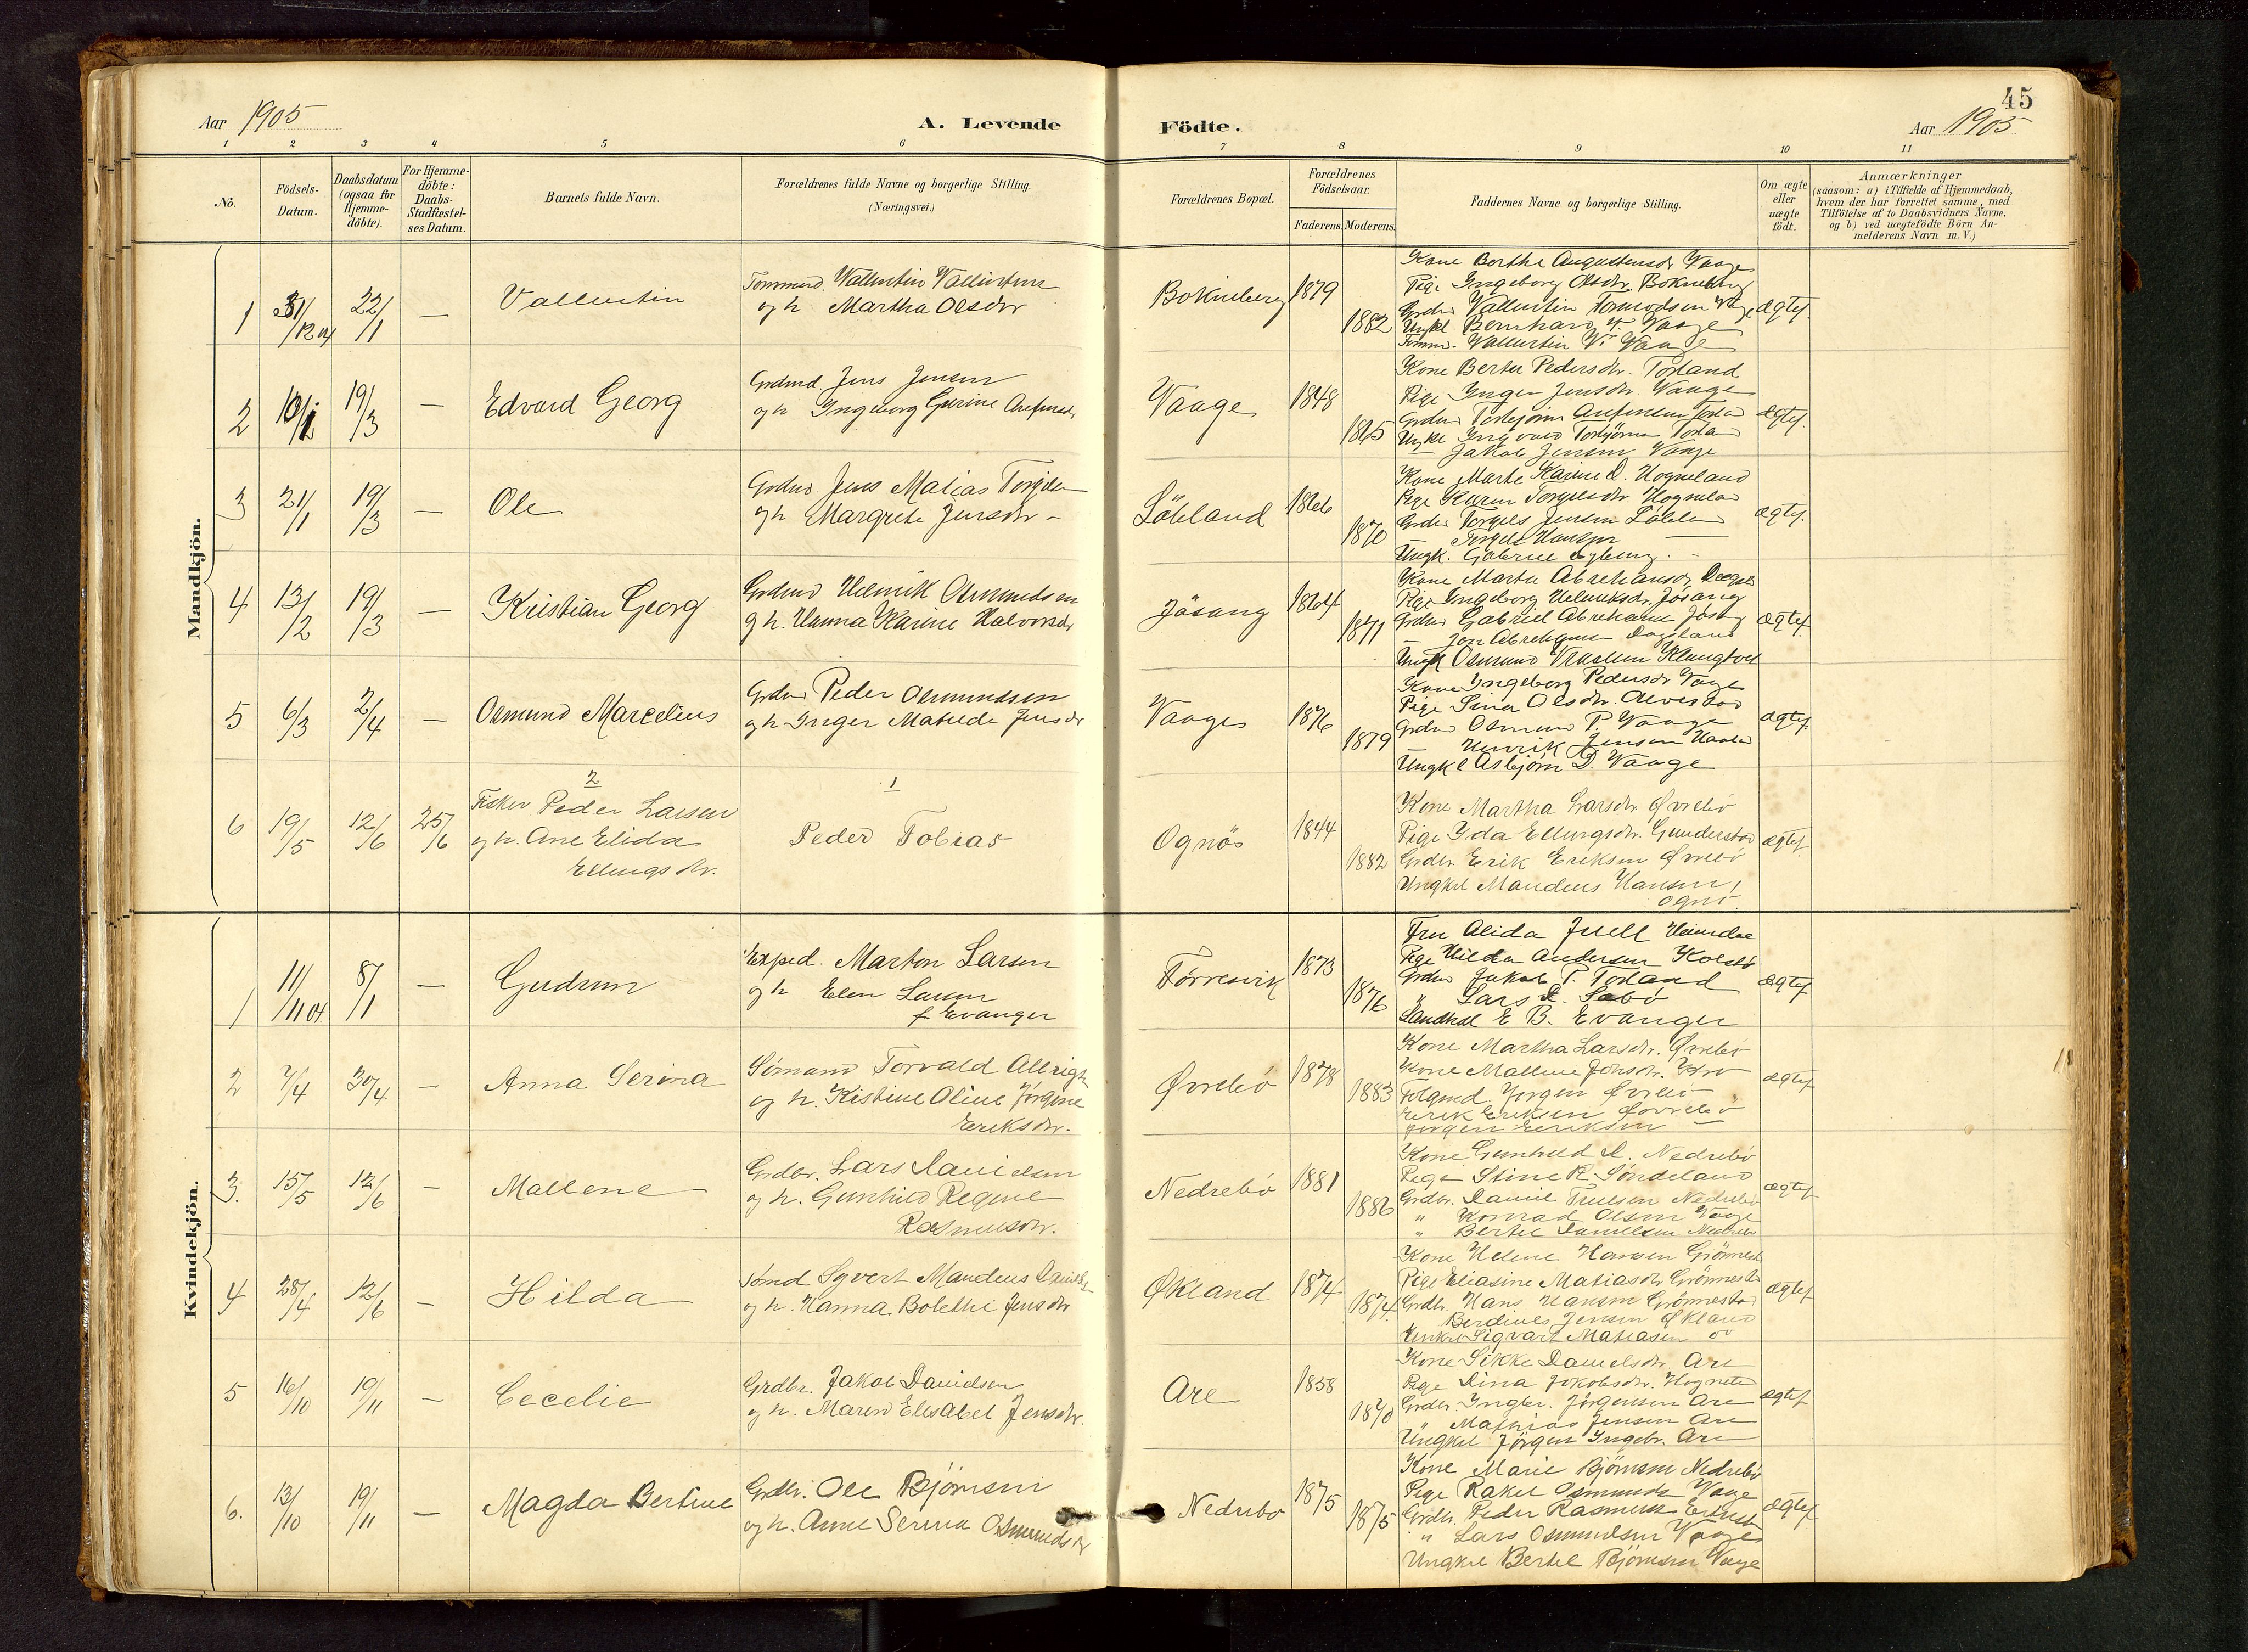 45
Aar 1905
A. Levende Födte.
Aar 1905
1 2 3 4 5 6 7 8 9 10 11
No.
Födsels-Datum.
Daabsdatum (ogsaa for Hjemme-döbte).
For Hjemme-döbte: Daabs-Stadfæstel-ses Datum.
Barnets fulde Navn.
Forældrenes fulde Navne og borgerlige Stilling.
(Næringsvei.)
Forældrenes Bopæl.
Forældrenes Födselsaar.
Faderens. Moderens.
Faddernes Navne og borgerlige Stilling.
Om ægte eller uægte födt.
Anmærkninger
(saasom: a) i Tilfælde af Hjemmedaab,
hvem der har forrettet samme, med
Tilföielse af to Daabsvidners Navne.
og b) ved uægtefödte Börn An-
melderens Navn m. V.)
Mandkjön.
1 31/12 04 22/1 — Vallentin
Tømmermd. Vallentin Vallentins
og h Martha Olsdtr
Bokneberg 1879 1882
Kone Berthe Augustinusdr Vaage
Pige Ingeborg Olsdtr. Bokneberg
Grdbr Vallentin Tormodsen Vage
Ungkl Bernhard T. Vaage
Tømm. Vallentin V. Vaage
ægtef.
2 19/3 — Edvard Georg
Grdmd. Jens Jensen
og h Ingeborg Gurine
Vaage 1848 1865
Kone Berte Pedersdtr. Torland
Pige Inger Jensdtr. Vaage
Grdbr Torbjørn
Ungkl Ingvald Torbjørns
— Jakob Jensen Vaage
ægtef.
3 21/1 19/3 — Ole
Grdbr Jens Matias Torgilsen
og h Margrete Jensdtr —
Löland 1866 1870
Kone Marte Karine D. Hogneland
Pige Karen Torgilsdtr. Hogneland
Grdbr Torgils Jensen
— Torgils Hansen —
Ungk. Gabriel
ægtef.
4 13/2 19/3 — Kristian Georg
Grdmd Helmik Osmundsen
og h. Hanna Karine Halvorsdr
Jösang 1864 1871
Kone Marta Abrahamsdr.
Pige Ingeborg Helmiksdr. Jösang
Grdbr Gabriel Abrahams Jösang
— Jon Abrahams Dagsland
Ungk Osmund
ægtef.
5 6/3 2/4 — Osmund Marcelius
Grdbr Peder Osmundsen
og h Inger Matilde Jensdr
Vaage 1876 1879
Kone Ingeborg Pedersdr Vage
Pige Sina Olsdtr. Alvestad
Grdbr Osmund P. Vaage
Henrik Jensen
Ungkl Asbjørn D. Vaage
ægtef.
6 19/5 12/6 25/6
2
Fisker Peder Larsen
og h. Ane Elida
Ellingsdtr.
1
Peder Tobias
Ognös 1844 1882
Kone Martha Larsdtr Øvrebö
Pige Ida Ellingsdtr. Gunderstad
Grdbr. Erik Eriksen Øvrebö
Ungkl Mandius Hansen,
Ognö.
ægtef.
Kvindekjön.
1 11/11 04. 8/1 — Gudrun
Exped. Marton Larsen
og h Elen Larsen
f Evanger
Førresvik 1873 1876
Fru Alida Juell Heimdal
Pige Hilda Andersen Kolstø
Grdbr Jakob T. Torland
" Lars D. Sæbö
Landhdl E B. Evanger
ægtef
2 7/4 30/4 — Anna Serina
Sømand Torvald Albrigts
og h. Kistine Oline Jørgine
Eriksdtr.
Øvrebö 1878 1883
Kone Martha Larsdtr. Øvrebö
Kone Mallene Johsdr. Kro
Folgmd. Jörgen Øvrebö
Erik Eriksen Øvrebö
Jörgen Eriksen —
ægtef
3. 15/5 12/6 — Mallene
Grdbr. Lars Danielsen
og h. Gunhild Regine
Rasmusdtr.
Nedrebö 1881 1886
Kone Gunhild D. Nedrebö
Pige Stine R. Söndeland
Grdbr. Daniel Truelsen Nedrebö
" Konrad Olsen Vaage
" Bertel Danielsen Nedrebö
ægtef
4 28/4 12/6 — Hilda
Sømd Syvert Mandius Danielsen
og h. Hanna Bolethe Jensdtr
Økland 1874 1874
Kone Helene Hansen Grönnestad
Pige Eliasine Matiasdr. Grönnestad
Grdbr. Hans Hansen Grönnestad
Berdines Jensen Økland
Unkrl Sigvart Matiasen
ægtef
5 16/10 19/11 — Cecelie
Grdbr. Jakob Danielsen
og h. Maren Elisabet Jensdtr.
Are 1858 1870
Kone Sikke Danielsdtr. Are
Pige Dina Jakobsdtr.
Grdbr. Ingbr. Jörgensen Are
" Mathias Jensen Are
Ungkl Jörgen Ingebr. Are
ægtef
6. 13/10 19/11 — Magda Bertine
Grdbr. Ole Björnsen
og h. Anne Serina Osmundsdr
Nedrebö 1875 1875
Kone Marie Björnsen Nedrebö
Pige Rakel Osmunds Vaage
Grdbr. Peder Rasmusen
" Lars Osmundsen Vaage
Ungkl Bertel Björnsen Vaage
ægtef